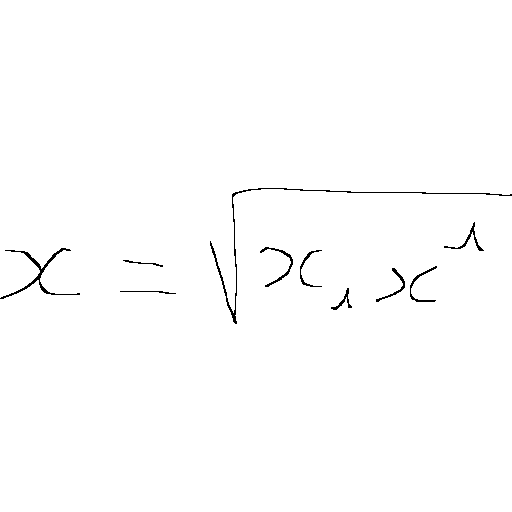 x = √(x₁x¹)